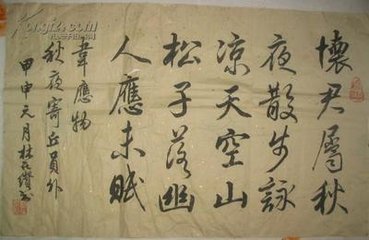 懷君屬秋
夜散步詠
凉天空山
松子落幽
人應未眠
韋應物
秋夜寄丘員外
甲申元月杜